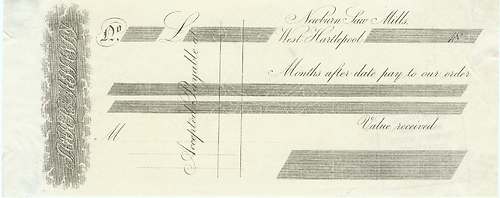 No
£
Newburn Saw Mills,
West Hartlepool
18
Months after date pay to our order
Value received
M
Accepted Payable